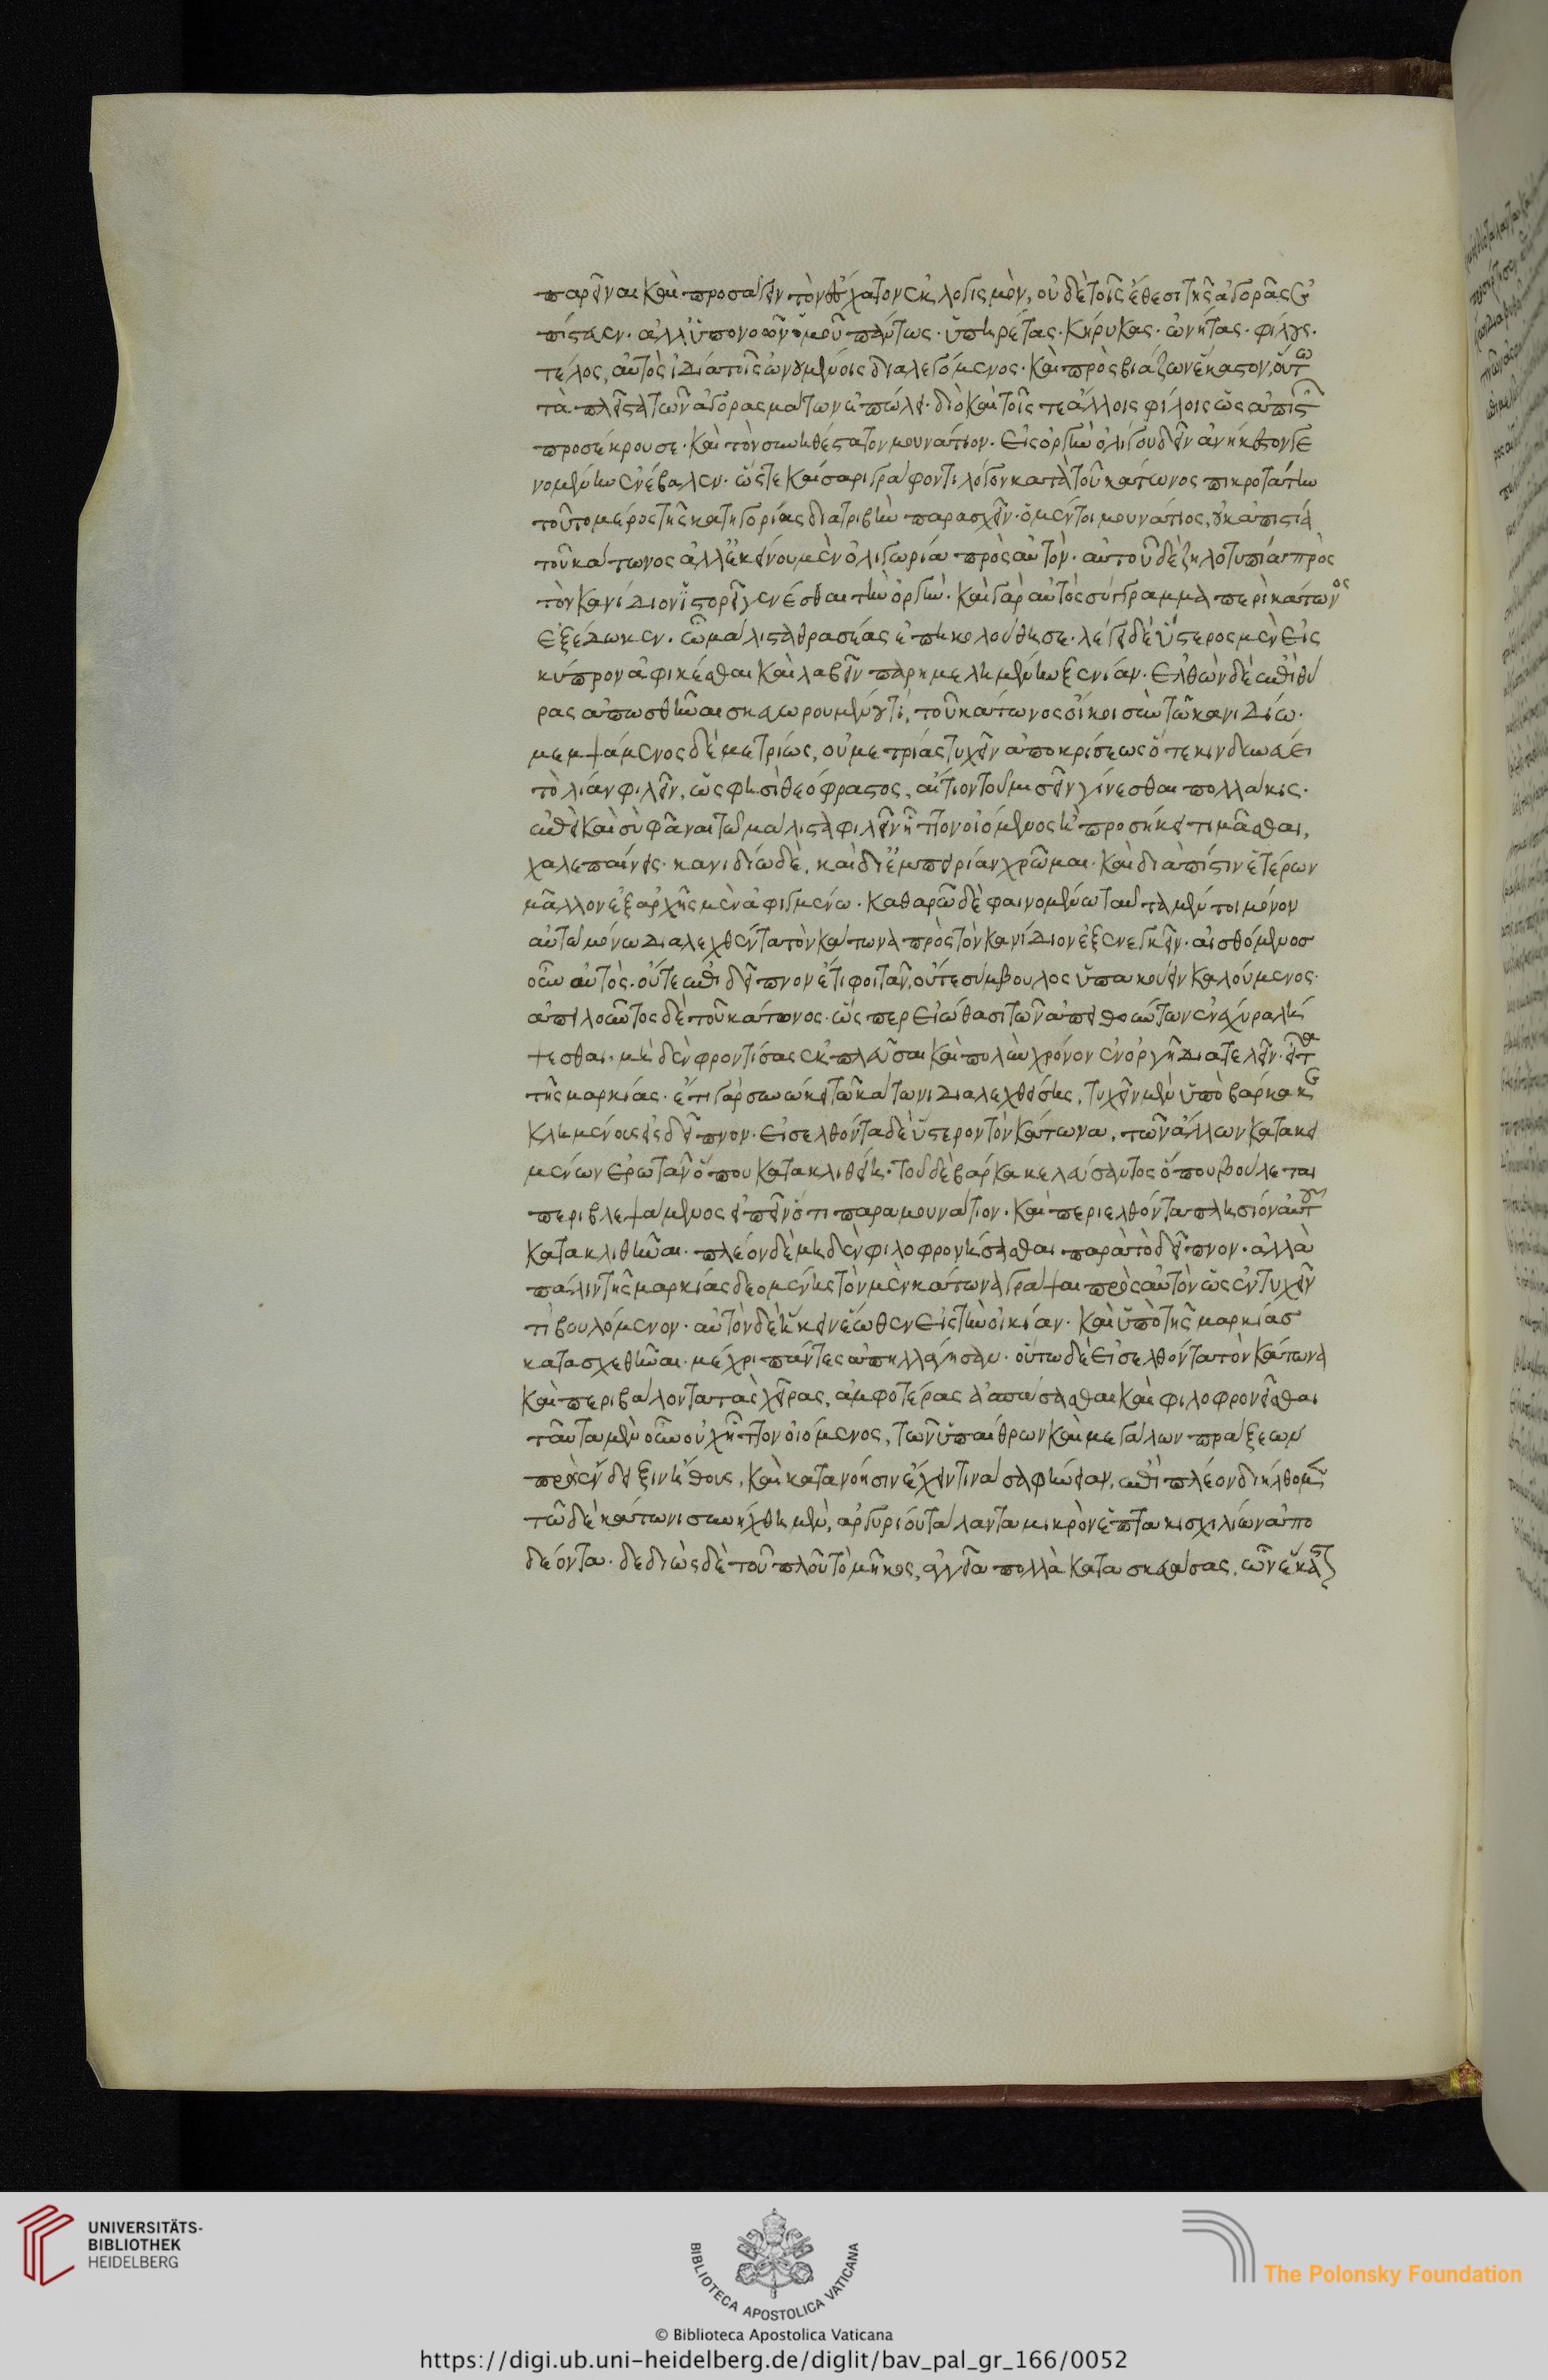 παρεῖναι καὶ προσάγειν τὸν ἔσχατον ἐκλογισμὸν, οὐδὲ τοῖς ἔθεσι τῆς ἀγορᾶς ἐ
πίστευεν. ἀλλ' ὑπονοῶν ὁμοῦ πάντως. ὑπηρέτας. κήρυκας. ὠνητὰς. φίλους.
τέλος, αὐτὸς ἰδία τοῖς ὠνουμένοις διαλεγόμενος. καὶ προσβιάζων ἕκαστον, οὕτω
τὰ πλεῖστα τῶν ἀγορασμάτων ἐπώλει. διὸ καὶ τοῖς τε ἄλλοις φίλοις ὡς ἀπιστῶν
προσέκρουσε. καὶ τὸν συνηθέστατον μουνάτιον. εἰς ὀργὴν ὀλίγου δεῖν ἀνήκεστον γε
νομένην ἐνέβαλεν. ὥστε καίσαρι γράφοντι λόγον κατὰ τοῦ κάτωνος πικροτάτην
τοῦτο μέρος τῆς κατηγορίας διατριβὴν παρασχεῖν. ὁ μέντοι μουνάτιος, οὐκ ἀπιστία
τοῦ κάτωνος ἀλλ' ἐκείνου μὲν ὀλιγωρία πρὸς αὐτὸν. αὐτοῦ δὲ ζηλοτυπία πρὸς
τὸν κανίδιον ἱστορεῖ γενέσθαι τὴν ὀργὴν. καὶ γὰρ αὐτὸς σύγγραμμα περὶ κάτωνος
ἐξέδωκεν. ὧ μάλιστα θρασέας ἐπηκολούθησε. λέγει δὲ ὕστερος μὲν εἰς
κύπρον ἀφικέσθαι καὶ λαβεῖν παρημελημένην ξενίαν. ἐλθὼν δὲ ἐπὶ θύ
ρας ἀπωσθῆναι σκευωρουμένου τί, τοῦ κάτωνος οἴκοι σὺν τῶ κανιδίω.
μεμψάμενος δὲ μετρίως, οὐ μετρίας τυχεῖν ἀποκρίσεως ὅτε κινδυνεύει
τὸ λίαν φιλεῖν, ὡς φησὶ θεόφραστος, αἴτιον τοῦ μισεῖν γίνεσθαι πολλάκις.
ἐπεὶ καὶ σὺ φᾶναι τῶ μάλιστα φιλεῖν ἧττον οἰόμενος ἢ προσήκει τιμᾶσθαι,
χαλεπαίνεις. κανιδίω δὲ, καὶ δι' ἐμπειρίαν χρῶμαι. καὶ διὰ πίστιν ἑτέρων
μᾶλλον ἐξ ἀρχῆς μὲν ἀφιγμένω. καθαρῶ δὲ φαινομένω ταῦτα μέν τοι μόνον
αὐτῶ μόνω διαλεχθέντα τὸν κάτωνα πρὸς τὸν κανίδιον ἐξενεγκεῖν. αἰσθόμενος
οὖν αὐτὸς. οὔτε ἐπὶ δεῖπνον ἔτι φοιτᾶν, οὔτε σύμβουλος ὑπακούειν καλούμενος.
ἀπειλοῦντος δὲ τοῦ κάτωνος. ὥσπερ εἰώθασι τῶν ἀπειθούντων ἐνέχυρα λή
ψεσθαι. μηδὲν φροντίσας ἐκπλεῦσαι καὶ πολὺν χρόνον ἐν ὀργῆ διατελεῖν. εἶτα
τῆς μαρκίας. ἔτι γὰρ συνώκει τῶ κάτωνι διαλεχθείσης, τυχεῖν μὲν ὑπὸ βάρκα κε
κλημένους εἰς δεῖπνον. εἰσελθόντα δὲ ὕστερον τὸν κάτωνα, τῶν ἄλλων κατακει
μένων ἐρωτᾶν ὅπου κατακλιθείη. τοῦ δὲ βάρκα κελεύσαντος ὅπου βούλεται
περιβλεψάμενος εἰπεῖν ὅτι παρὰ μουνάτιον. καὶ περιελθόντα πλησίον αὐτοῦ
κατακλιθῆναι. πλέον δὲ μηδὲν φιλοφρονήσασθαι παρὰ τὸ δεῖπνον. ἀλλὰ
πάλιν τῆς μαρκίας δεομένης τὸν μὲν κάτωνα γράψαι πρὸς αὐτὸν ὡς ἐντυχεῖν
τὶ βουλόμενον. αὐτὸν δὲ ἥκειν ἕωθεν εἰς τὴν οἰκίαν. καὶ ὑπὸ τῆς μαρκίας
κατασχεθῆναι. μέχρι πάντες ἀπηλλάγησαν. οὕτω δὲ εἰσελθόντα τὸν κάτωνα
καὶ περιβαλόντα τὰς χεῖρας, ἀμφοτέρας ἀσπάσασθαι καὶ φιλοφρονεῖσθαι
ταῦτα μὲν οὖν οὐχ ἧττον οἰόμενος, τῶν ὑπαίθρων καὶ μεγάλων πράξεων
πρὸς ἔνδειξιν ἤθους, καὶ κατανόησιν ἔχειν τινὰ σαφήνειαν, ἐπὶ πλέον διήλθομεν
τῶ δὲ κάτωνι συνήχθη μὲν, ἀργυρίου τάλαντα μικρὸν ἑπτακισχιλίων ἀπο
δέοντα. δεδιὼς δὲ τοῦ πλοῦ τὸ μῆκος, ἀγγεῖα πολλὰ κατασκευάσας, ὧν ἕκαστον
UNIVERSITÄTS-
BIBLIOTHEK
HEIDELBERG
BIBLIOTECA APOSTOLICA VATICANA
The Polonsky Foundation
© Biblioteca Apostolica Vaticana
https://digi.ub.uni-heidelberg.de/diglit/bav_pal_gr_166/0052